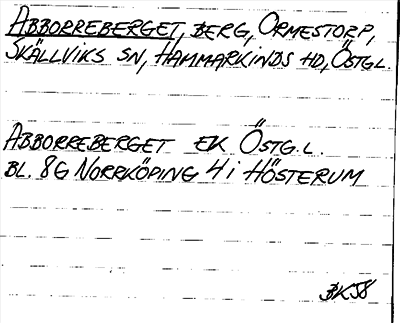 ABBORREBERGET, BERG, ORMESTORP,
SKÄLLVIKS SN, HAMMARKINDS HD, ÖSTGL.
ABBORREBERGET EK ÖSTG.L.
BL. 8G NORRKÖPING 4i HÖSTERUM
BK58